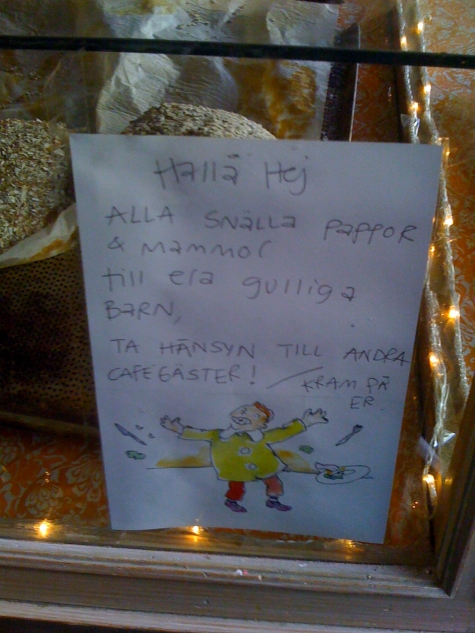 Hallå Hej
ALLA SNÄLLA PAPPOR
& MAMMOR
till era gulliga
BARN,
TA HÄNSYN TILL ANDRA
CAFEGÄSTER!
KRAM PÅ
ER.